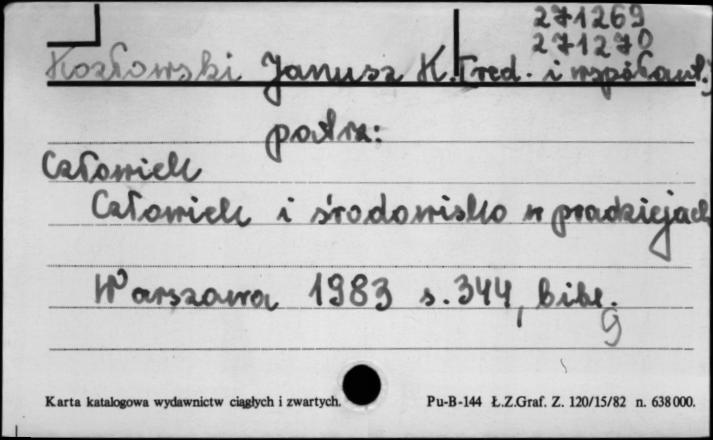 271269
271270
Kozłowski Janusz K. [red. i współaut.]
patrz:
Człowiek
Człowiek i środowisko w pradziejach
Warszawa 1983 s. 344, bibl.
9
Karta katalogowa wydawnictw ciągłych i zwartych.
Pu-B-144 Ł.Z.Graf. Z. 120/15/82 n. 638000.